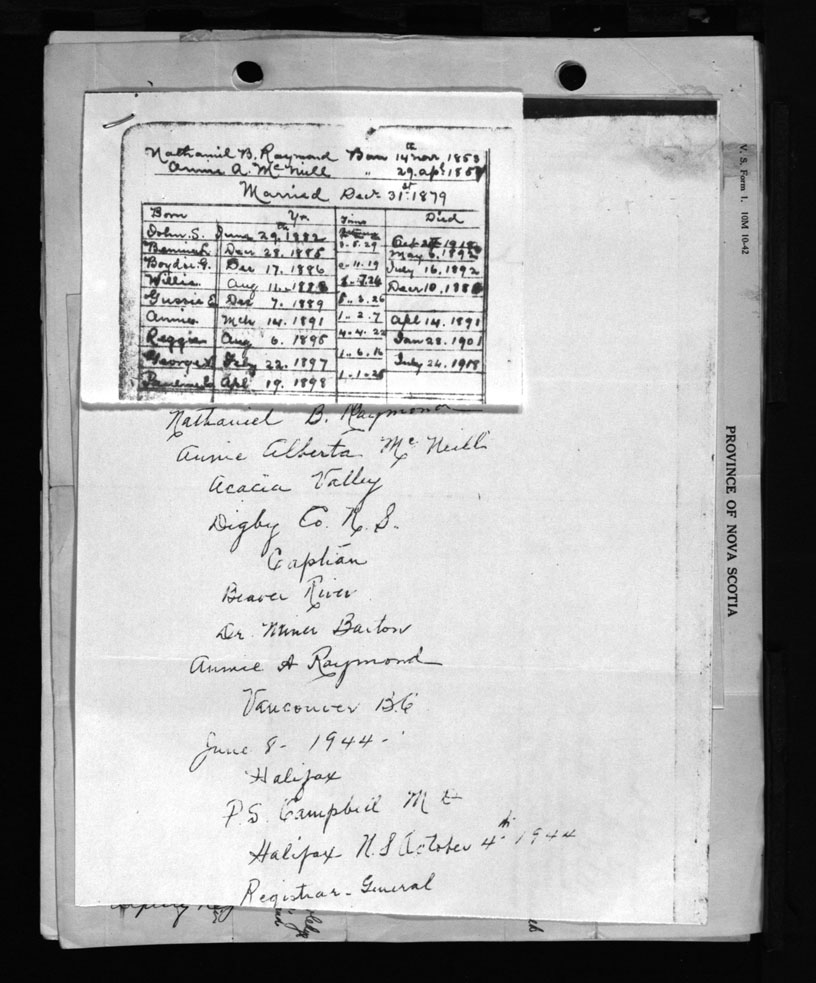 Nathaniel B. Raymond Born 14th Nov. 1853
Annie A. McNeill " 29. Apl. 185
Married Decr. 31st. 1879
Born Yrs. Died
John S. June 29th. 1882
Dec 28. 1885 3.5.29 May 6. 1892
Boydie G. Dec 17. 1886 11.19 July 16. 1892
Willis Aug 188 Decr 10. 188
Gussie E Dec 7. 1889
Annie Mch 14. 1891 1.2.7 Apl 14. 1891
Reggie Aug 6. 1895 4.4.22 Jan 28. 1901
George Feby 22. 1897 1.6.16 July 24. 1918
Apl 19. 1898
Nathaniel B. Raymond
Annie Alberta McNeill
Acacia Valley
Digby Co. N.S.
Captian
Beaver River
Dr. Miner Barton
Annie A Raymond
Vancouver B.C
June 8- 1944-
Halifax
P.S. Campbell M
Halifax N.S October 4th 1944
Registrar-General
V. S. Form 1. 10M 10-42
PROVINCE OF NOVA SCOTIA